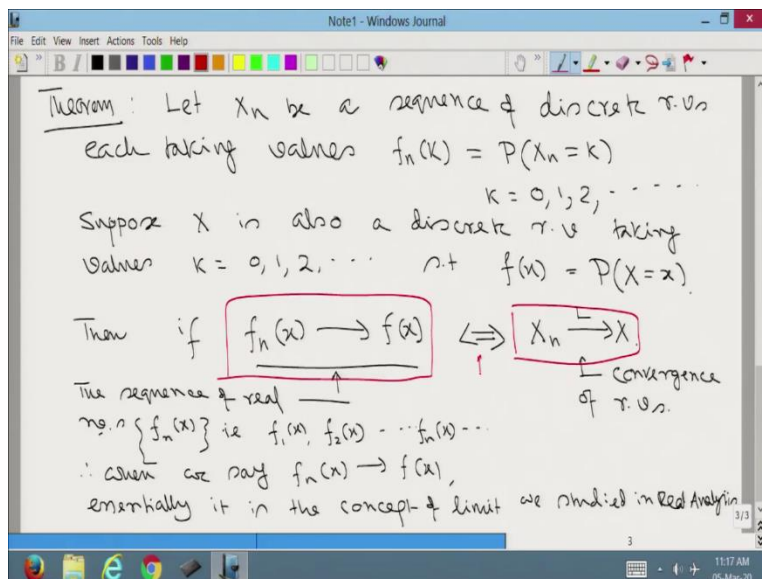 Note1 - Windows Journal
File Edit View Insert Actions Tools Help
Theorem : Let Xn be a sequence of discrete r.vs
each taking values fn(K) = P(Xn = k)
K = 0, 1, 2, - - - - -
Suppose X is also a discrete r.v taking
values K = 0, 1, 2, ... s.t f(x) = P(X = x)
Then if fn(x) ⟶ f(x) ⟺ Xn –L→ X
The sequence of real
no.s {fn(x)} ie f1(x), f2(x) - - - fn(x) - - -
convergence
of r.vs.
∴ when we say fn(x) → f(x),
essentially it is the concept of limit we studied in Real Analysis
3/3
3
11:17 AM
05-Mar-20